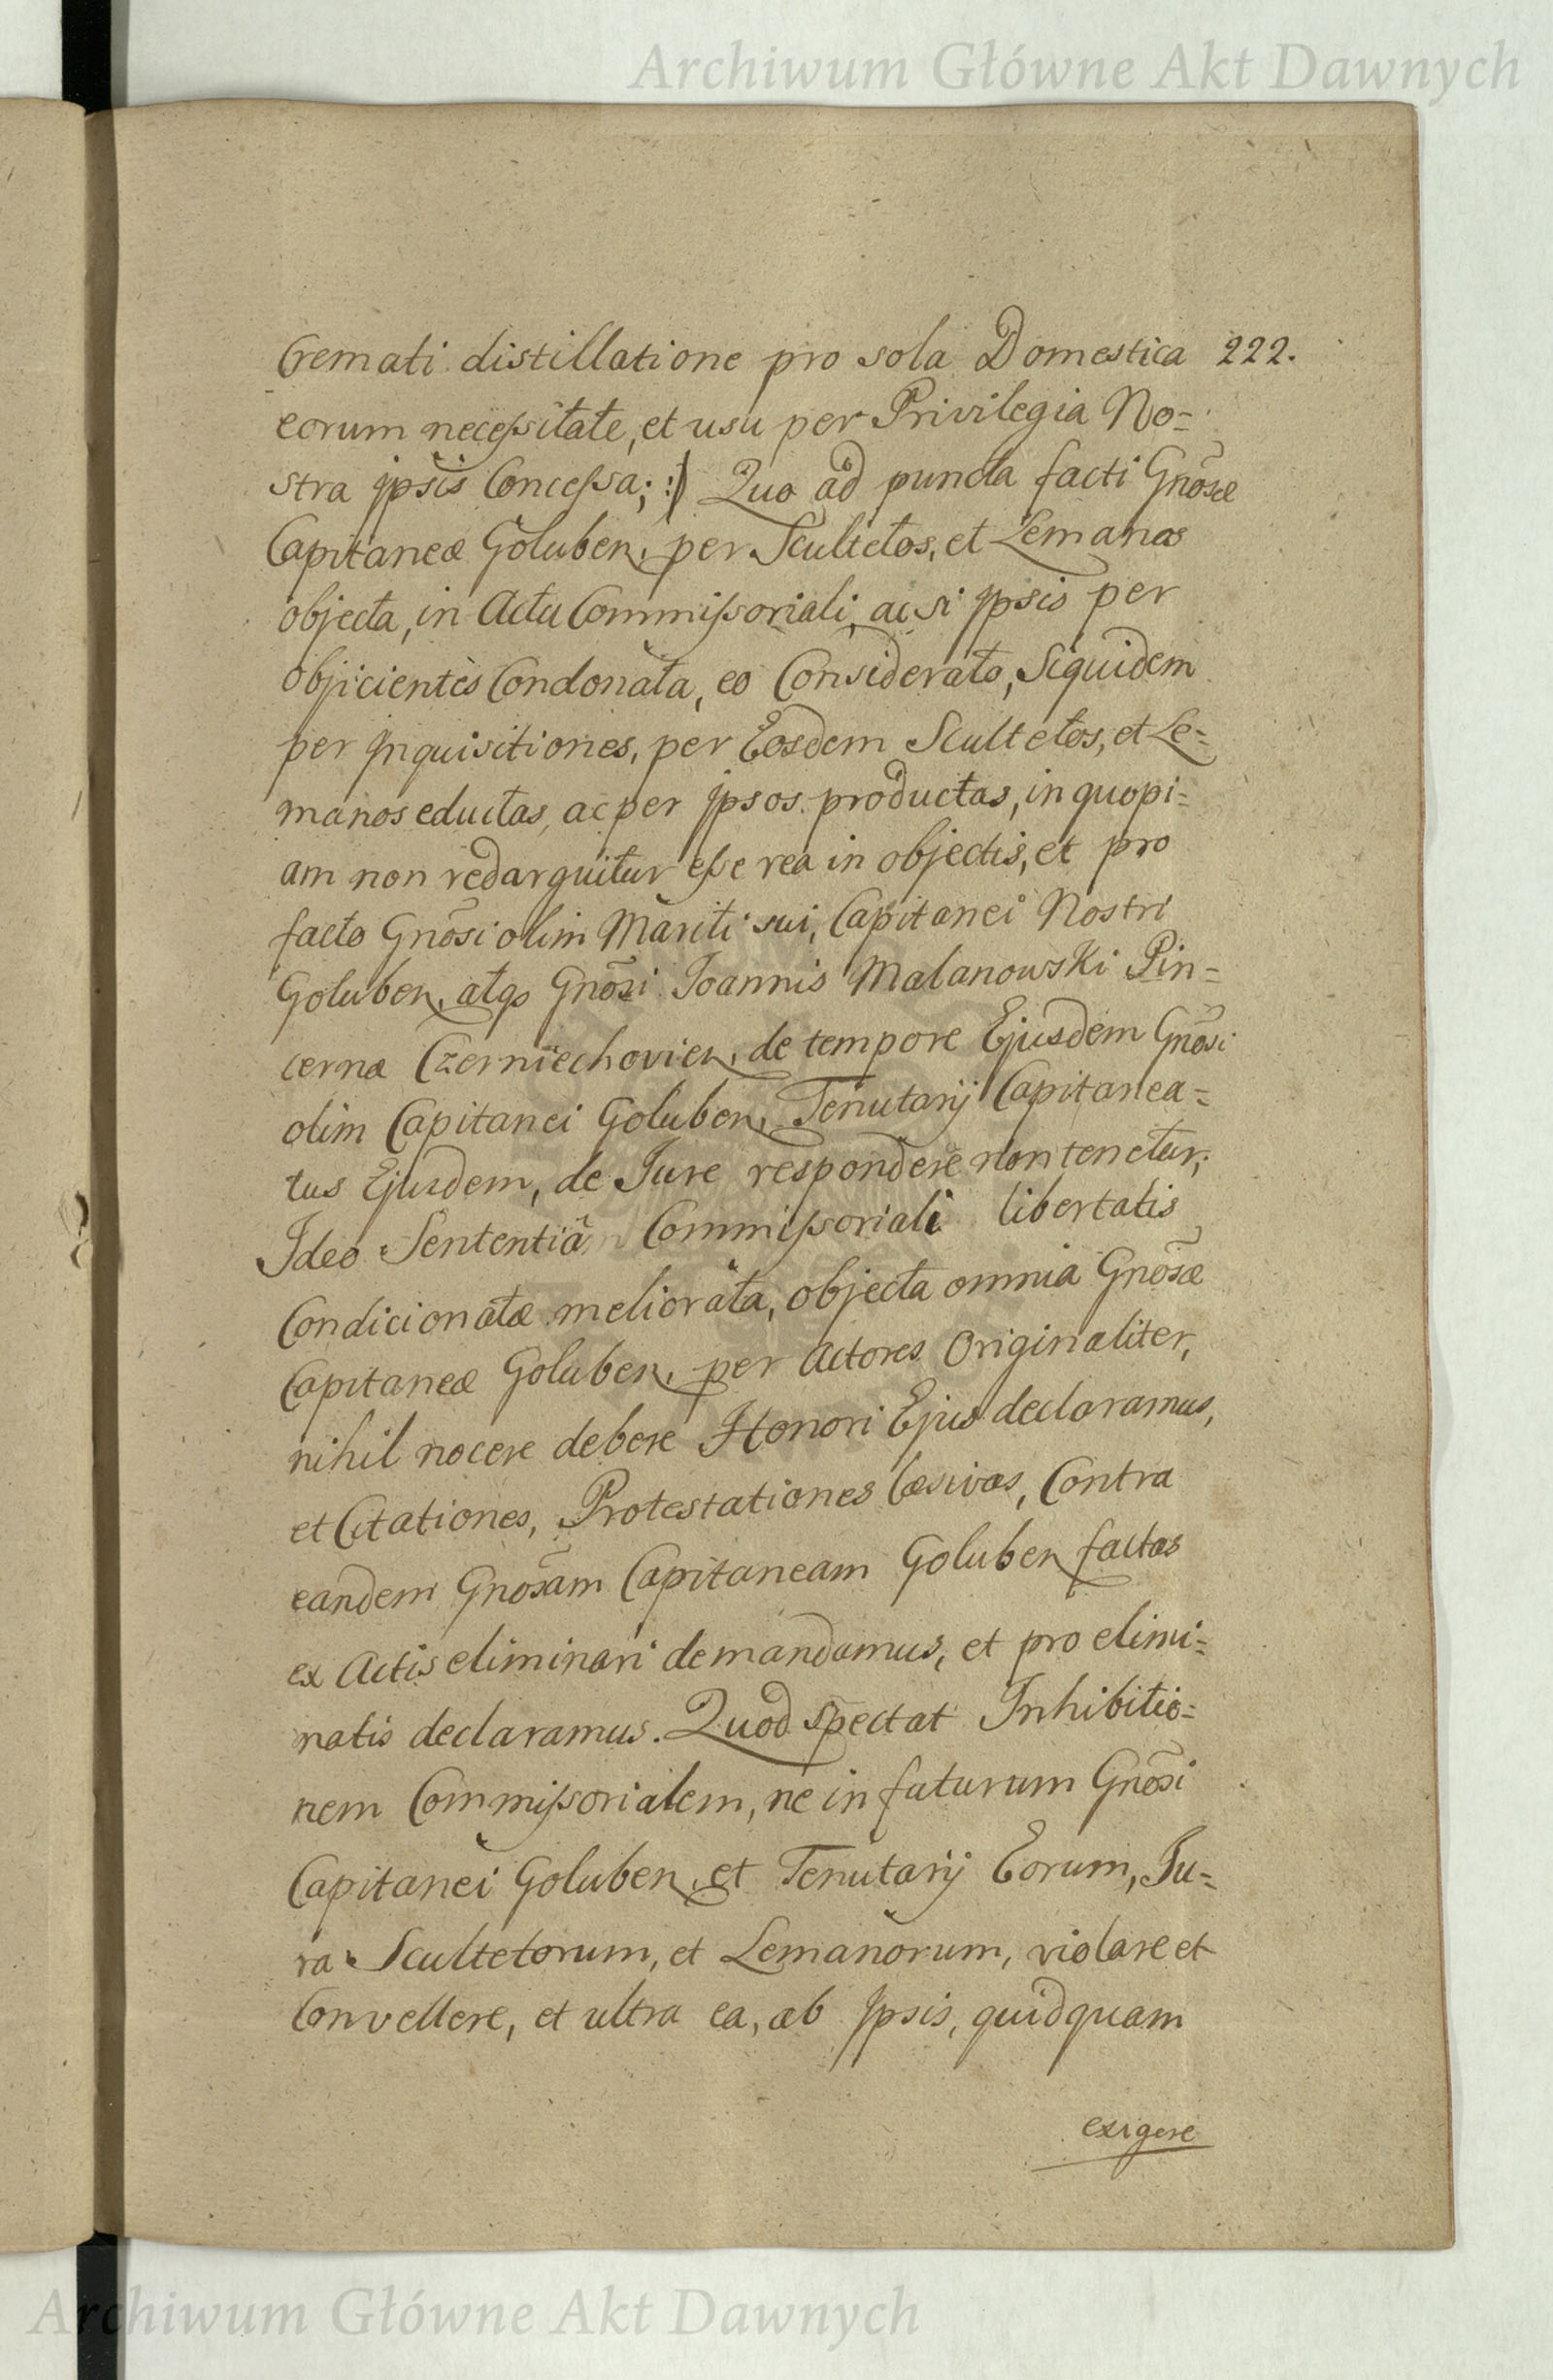 Archiwum Główne Akt Dawnych
Cremati distillatione pro sola Domestica 222.
eorum necessitate, et usu per Privilegia No=
stra ipsis Concessa; :) Quo ad puncta facti Gnosæ
Capitaneæ Goluben, per Scultetos, et Lemanos
objecta, in Actu Commissoriali, ac si Ipsis per
objicientes Condonata, eo Considerato, Siquidem
per Inquisitiones, per Eosdem Scultetos, et Le=
manos eductas, ac per Ipsos productas, in quopi=
am non redarguitur esse rea in objectis, et pro
facto Gnosi olim Mariti sui, Capitanei Nostri
Goluben, atqs Gnosi Joannis Malanowski Pin=
cernæ Czerniechovien, de tempore Ejusdem Gnosi
olim Capitanei Goluben, Tenutarij Capitanea=
tus Ejusdem, de Jure respondere non tenetur;
Ideo Sententiâ Commissoriali libertatis
Condicionatæ meliorata, objecta omnia Gnosæ
Capitaneæ Goluben, per Actores Originaliter,
nihil nocere debere Honori Ejus declaramus,
et Citationes, Protestationes læsivas, Contra
eandem Gnosam Capitaneam Goluben factas
ex Actis eliminari demandamus, et pro elimi=
natis declaramus. Quod spectat Inhibitio=
nem Commissorialem, ne in futurum Gnosi
Capitanei Goluben, et Tenutarij Eorum, Ju=
ra Scultetorum, et Lemanorum, violare et
Convellere, et ultra ea, ab Ipsis, quidquam
exigere
Archiwum Główne Akt Dawnych